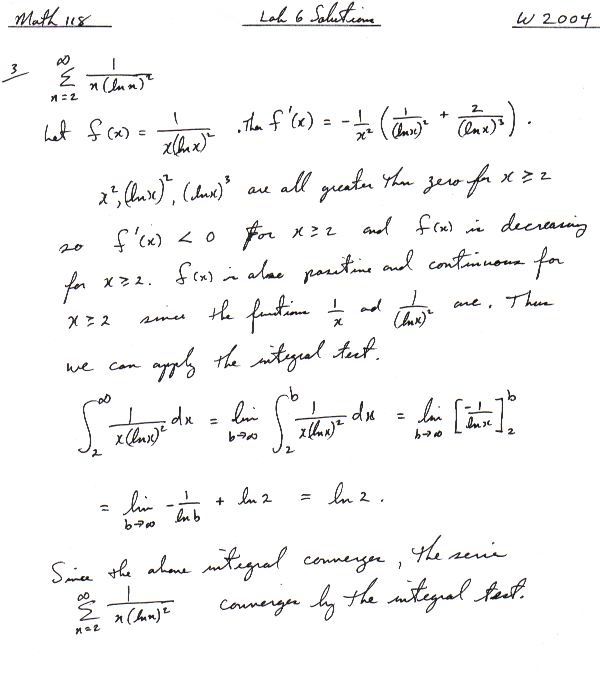 Math 118 Lab 6 Solutions W 2004
3 ∑_{n=2}^{∞} 1/(n(ln n)²)
Let f(x) = 1/(x(ln x)²) . Then f'(x) = -1/x² (1/(ln x)² + 2/(ln x)³) .
x², (ln x)², (ln x)³ are all greater than zero for x ≥ 2
so f'(x) < 0 for x ≥ 2 and f(x) is decreasing
for x ≥ 2. f(x) is also positive and continuous for
x ≥ 2 since the functions 1/x and 1/(ln x)² are. Thus
we can apply the integral test.
∫_2^∞ 1/(x(ln x)²) dx = lim_{b→∞} ∫_2^b 1/(x(ln x)²) dx = lim_{b→∞} [-1/ln x]_2^b
= lim_{b→∞} -1/ln b + ln 2 = ln 2 .
Since the above integral converges, the serie
∑_{n=2}^{∞} 1/(n(ln n)²) converges by the integral test.